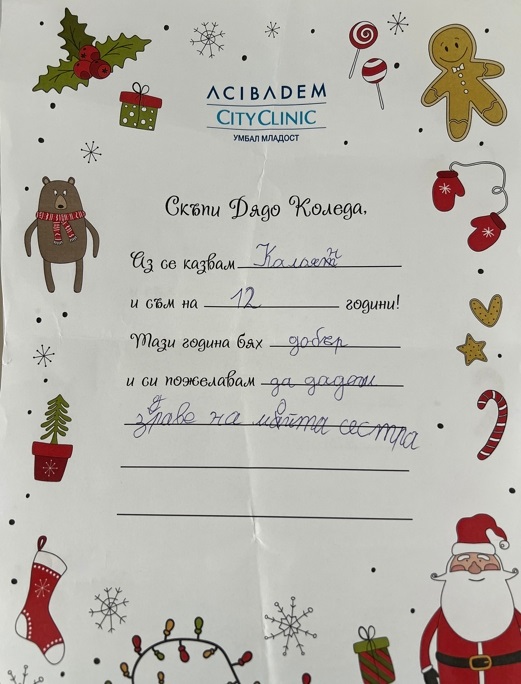 ACIBADEM
CITYCLINIC
УМБАЛ МЛАДОСТ
Скъпи Дядо Коледа,
Аз се казвам Калоян
и съм на 12 години!
Тази година бях добър
и си пожелавам да дадеш
здраве на мойта сестра